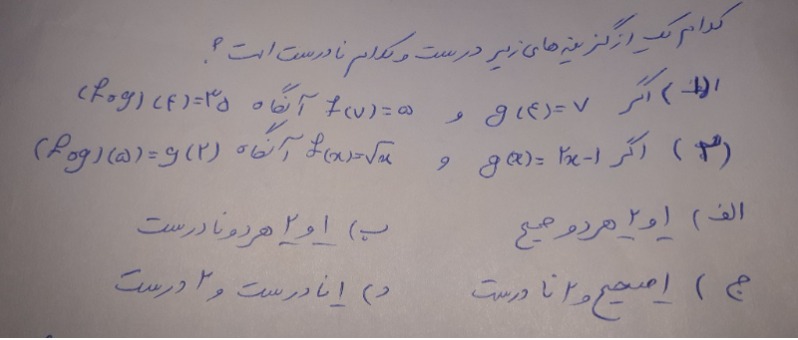 کدام یک از گزینه های زیر درست و کدام نادرست است ؟
۱) اگر g(۴)=۷ و f(۷)=۵ آنگاه (fog)(۴)=۳۵
۲) اگر g(x)=۲x-۱ و f(x)=√x آنگاه (fog)(۵)=g(۲)
الف) ۱ و ۲ هر دو صحیح ب) ۱ و ۲ هر دو نادرست
ج) ۱ صحیح و ۲ نا درست د) ۱ نا درست و ۲ درست